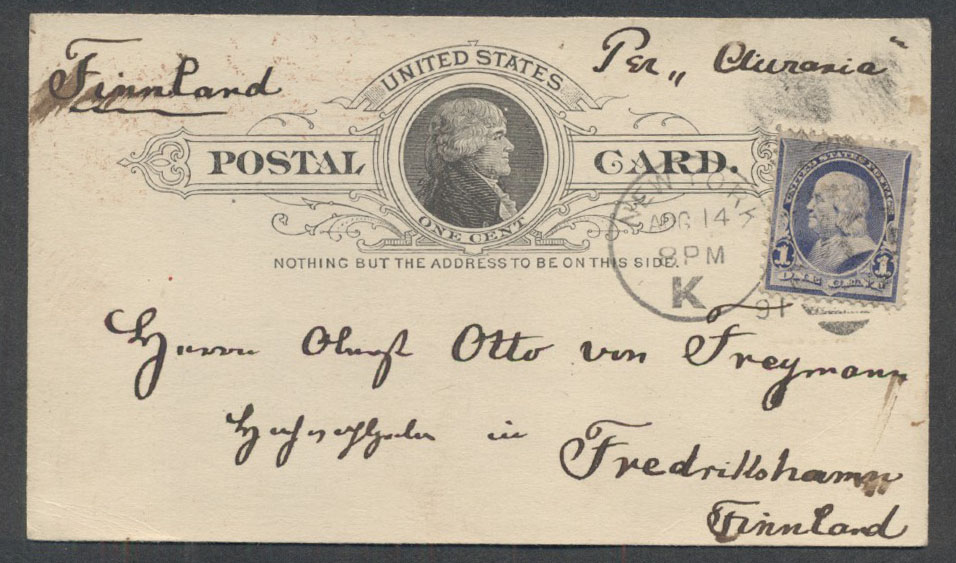 Finnland
Per „Aurania“
UNITED STATES
POSTAL CARD.
ONE CENT
NOTHING BUT THE ADDRESS TO BE ON THIS SIDE.
NEW YORK
AUG 14
8 PM
K
91
UNITED STATES POSTAGE
1 1
ONE CENT
Herrn Oberst Otto von Freymann
in
Fredrikshamn
Finnland